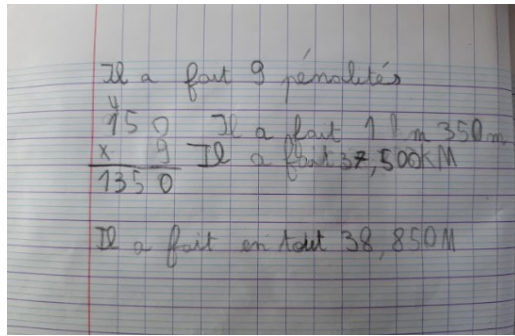 Il a fait 9 pénalités
4
150 Il a fait 1 m 350 m
x 9 Il a fait 37,500KM
1350
Il a fait en tout 38,850M